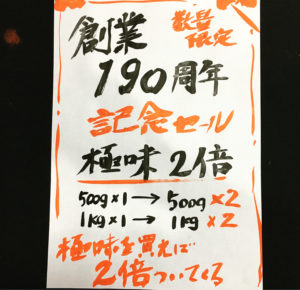 創業
数量
限定
190周年
記念セール
極味 2倍
500g×1→500g×2
1kg×1→1kg×2
極味を買えば
2倍ついてくる